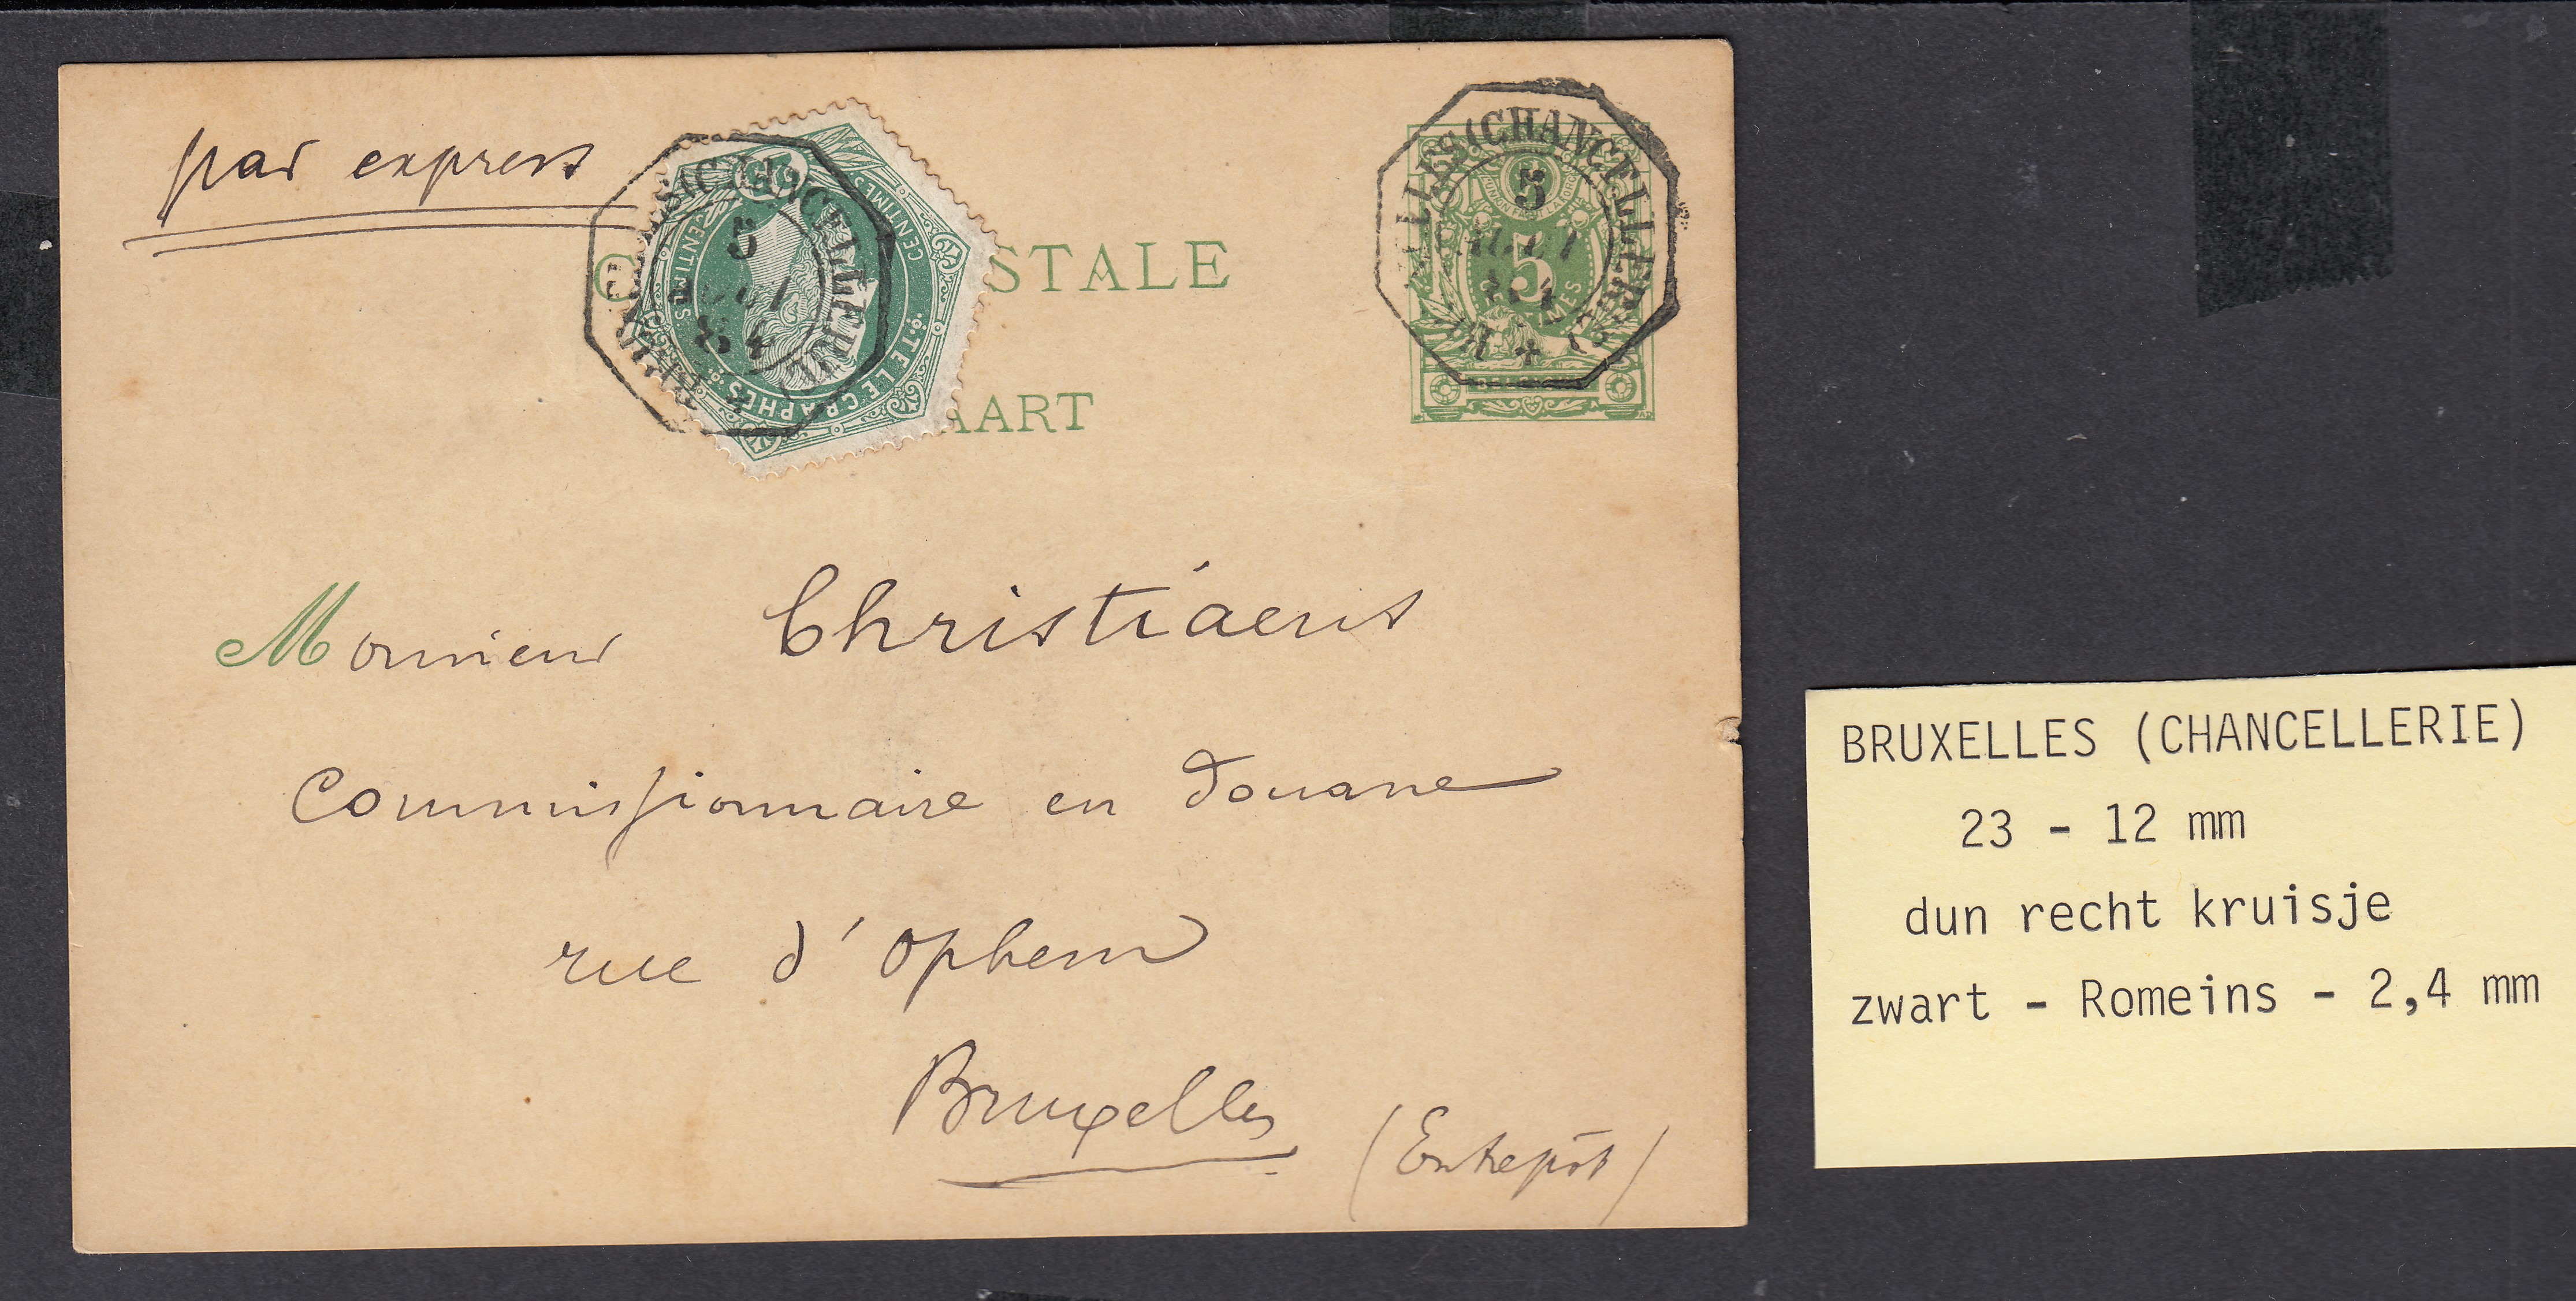 par express
STALE
AART
BRUXELLES (CHANCELLERIE)
5
84
25
CENTIMES
TELEGRAPHES
CENTIMES
ELLES (CHANCELLERIE)
5
5
Monsieur Christiaens
Commissionnaire en Douane
rue d'Ophem
Bruxelles
(Entrepôt)
BRUXELLES (CHANCELLERIE)
23 - 12 mm
dun recht kruisje
zwart - Romeins - 2,4 mm